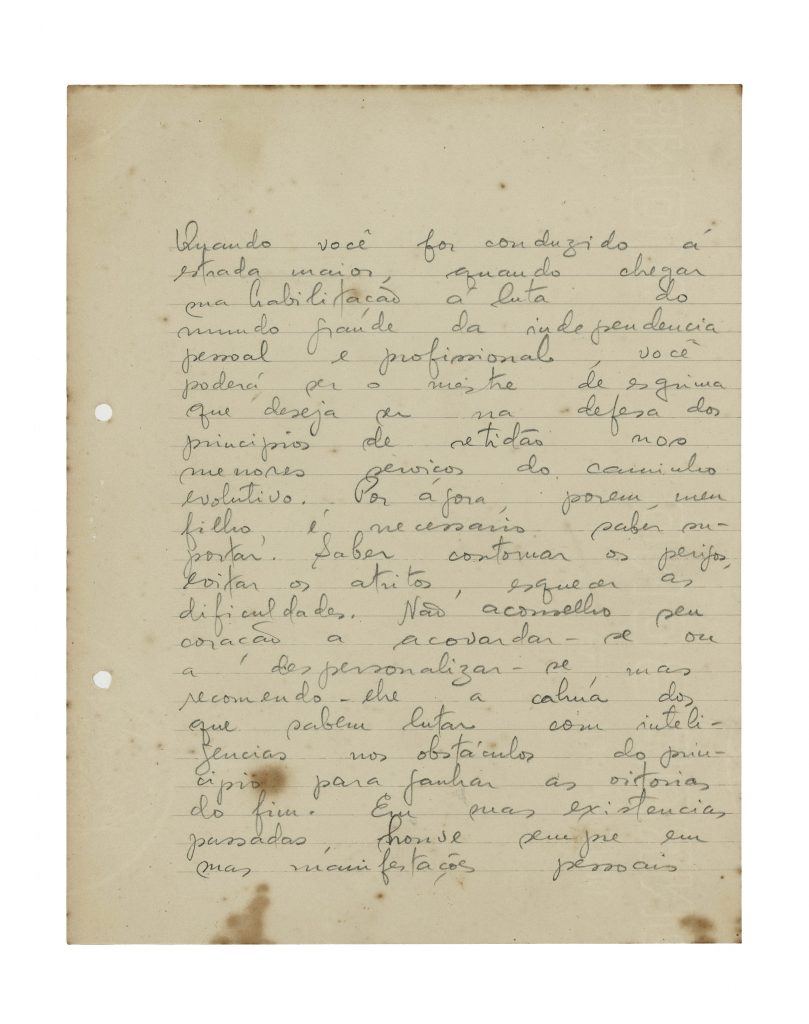 Quando você for conduzido á
estrada maior, quando chegar
na habilitação á luta do
mundo grande da independencia
pessoal e profissional, você
poderá ser o mestre de esgrima
que deseja ser na defesa dos
principios de retidão nos
menores serviços do caminho
evolutivo. Por ágora, porem, meu
filho, é necessario saber su-
portar. Saber contornar os perigos,
evitar os atritos, esquecer as
dificuldades. Não aconselho seu
coração a acovardar-se ou
a despersonalizar-se mas
recomendo-lhe a calma dos
que sabem lutar com inteli-
gencias nos obstáculos do prin-
cipio para ganhar as vitorias
do fim. Em suas existencias
passadas, houve sempre em
suas manifestações pessoais